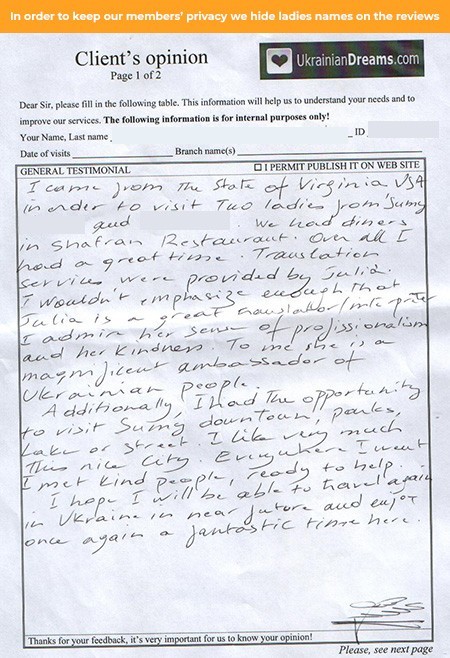 In order to keep our members' privacy we hide ladies names on the reviews
Client's opinion
Page 1 of 2
UkrainianDreams.com
Dear Sir, please fill in the following table. This information will help us to understand your needs and to
improve our services. The following information is for internal purposes only!
Your Name, Last name _ID
Date of visits Branch name(s)
GENERAL TESTIMONIAL I PERMIT PUBLISH IT ON WEB SITE
I came from The State of Virginia USA
in order to visit Two ladies from Sumy
and . We had diners
in Shafran Restaurant. Over all I
had a great time. Translation
services were provided by Julia.
I wouldn't emphasize enough that
Julia is a great translator/interpreter
I admir her sense of profissionalism
and her kindness. To me she is a
magnificent ambassador of
Ukrainian people.
Additionally, I had The opportunity
to visit Sumy downtown, parks,
Lake or street. I like very much
This nice City. Everywhere I went
I met kind people, ready to help.
I hope I will be able to travel again
in Ukraine in near future and enjoy
once again a fantastic time here.
Thanks for your feedback, it's very important for us to know your opinion!
Please, see next page